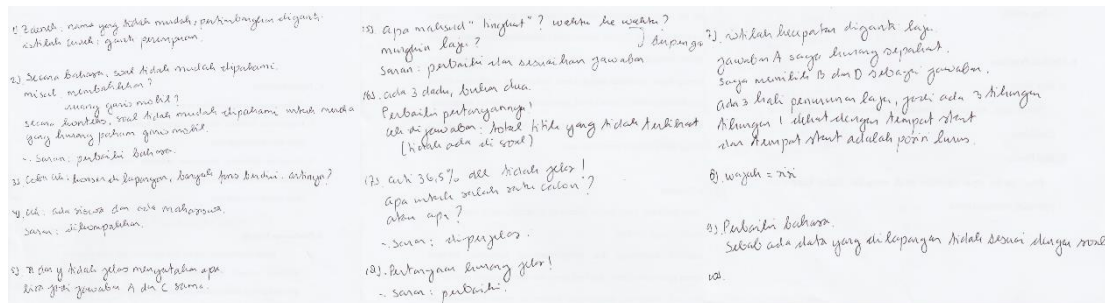 1) Zaenah, nama yang tidak mudah, pertimbangkan diganti.
istilah cewek: ganti perempuan.
2.) Secara bahasa, soal tidak mudah dipahami.
misal membalikkan?
ruang garis mobil?
secara konteks, soal tidak mudah dipahami untuk mereka
yang kurang paham garis mobil.
-. Saran: perbaiki bahasa.
3) Coba cek: konser di lapangan, banyak fans berdiri. artinya?
4). cek: ada siswa dan ada mahasiswa.
saran: dikompakkan.
5) x dan y tidak jelas menyatakan apa.
bisa jadi jawaban A dan C sama.
15) apa maksud "tingkat"? waktu ke waktu?
mungkin laju?
Saran: perbaiki dan sesuaikan jawaban
16). ada 3 dadu, bukan dua.
Perbaiki pertanyaannya!
cek di jawaban: total titik yang tidak terlihat
(tidak ada di soal)
17). arti 36,5% dll tidak jelas!
apa untuk salah satu calon?
atau apa?
-. Saran: diperjelas.
18). Pertanyaan kurang jelas!
-. Saran: perbaiki.
7). istilah kecepatan diganti laju.
jawaban A saya kurang sepakat.
Saya memilih B dan D sebagai jawaban.
ada 3 kali penurunan laju, jadi ada 3 tikungan
tikungan 1 dekat dengan tempat start
dan tempat start adalah posisi lurus.
8). wajah = sisi
9). Perbaiki bahasa.
Sebab ada data yang di lapangan tidak sesuai dengan soal
10).